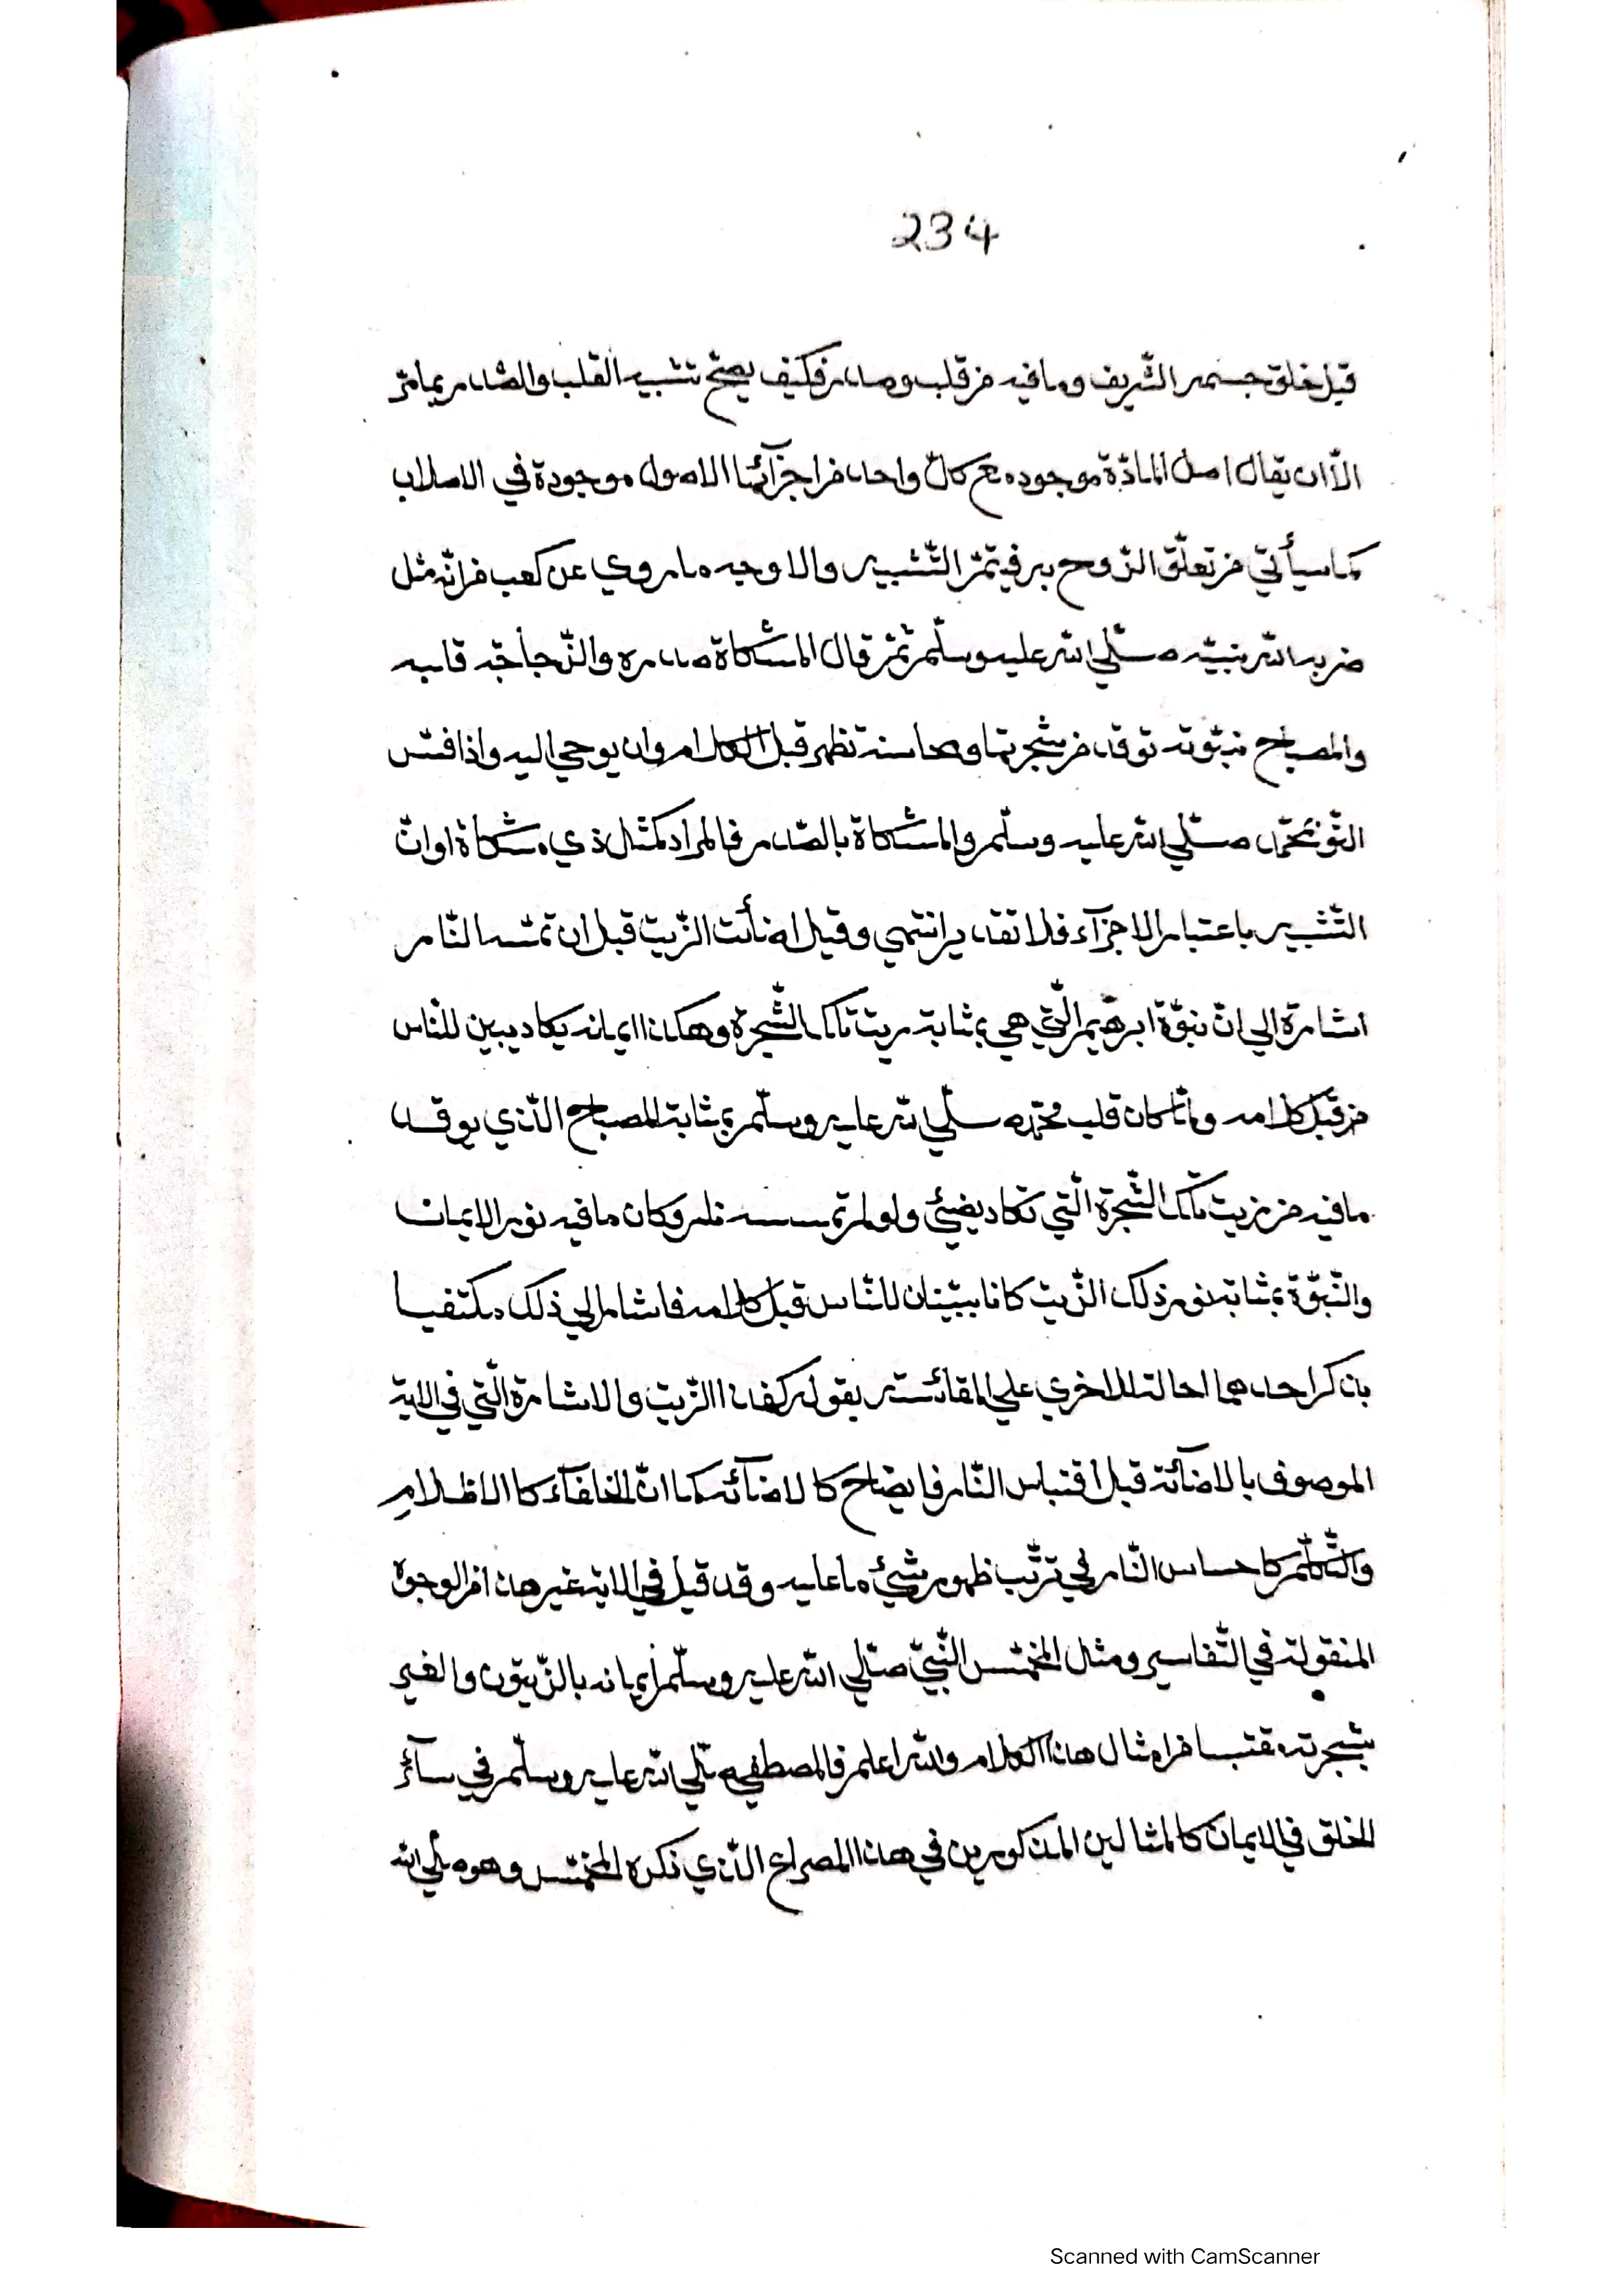 234
قبل خلق جسمه الشّريف وما فيه من قلب وصدر فكيف يصحّ تشبيه القلب والصّدر بما مرّ
الّا ان يقال اصل المادّة موجوده مع كلّ واحد من اجزآئها الاصول موجودة في الاصلاب
كما سيأتي من تعلّق الرّوح به فيتمّ التّشبيه والاوجه ما روي عن كعب من انّه مثل
ضربه الله لنبيّه صلّي الله عليه وسلّم ثمّ قال المشكاة صدره والزّجاجة قلبه
والمصباح نبوّته توقد من شجرتها ومحاسنه تظهر قبل الكلام وان يوحي اليه واذا فسّر
النّور بمحمّد صلّي الله عليه وسلّم والمشكاة بالصّدر فالمراد كمثل ذي مشكاة او انّ
التّشبيه باعتبار الاجزآء فلا تقدير انتهي وقيل اضأئت الزّيت قبل ان تمسّه النّار
اشارة الي انّ نبوّة ابرهيم الّتي هي بمثابة زيت تلك الشّجرة وهكذا ايمانه يكاد يبين للنّاس
من قبل كلامه ولمّا كان قلب محمّد صلّي الله عليه وسلّم بمثابة المصباح الّذي يوقد
ما فيه من زيت تلك الشّجرة الّتي تكاد يضيئ ولو لم تمسسه نار وكان ما فيه نور الايمان
والنّبوّة بمثابة نور ذلك الزّيت كانا يبيّنان للنّاس قبل كلامه فاشار الي ذلك مكتفيا
بذكر احدهما احالة للاخري علي المقائسة بقوله كفذا الزّيت والاشارة الّتي في الاية
الموصوف بالاضآئة قبل اقتباس النّار فايضاح كالاضآئة كما انّ الخلفآء كالاظلام
والتّكلّم كاحساس النّار في ترتّب ظهور شيئ ما عليه وقد قيل في الاية غير هذا من الوجوه
المنقولة في التّفاسير ومثل المخمّس النّبيّ صلّي الله عليه وسلّم ايمانه بالزّيتون والغير
بشجرته مقتبسا من امثال هذا الكلام والله اعلم فالمصطفي صلّي الله عليه وسلّم في سآئر
الخلق في الايمان كالمثالين المذكورين في هذا المصراع الّذي ذكره المخمّس وهو صلّي الله
Scanned with CamScanner